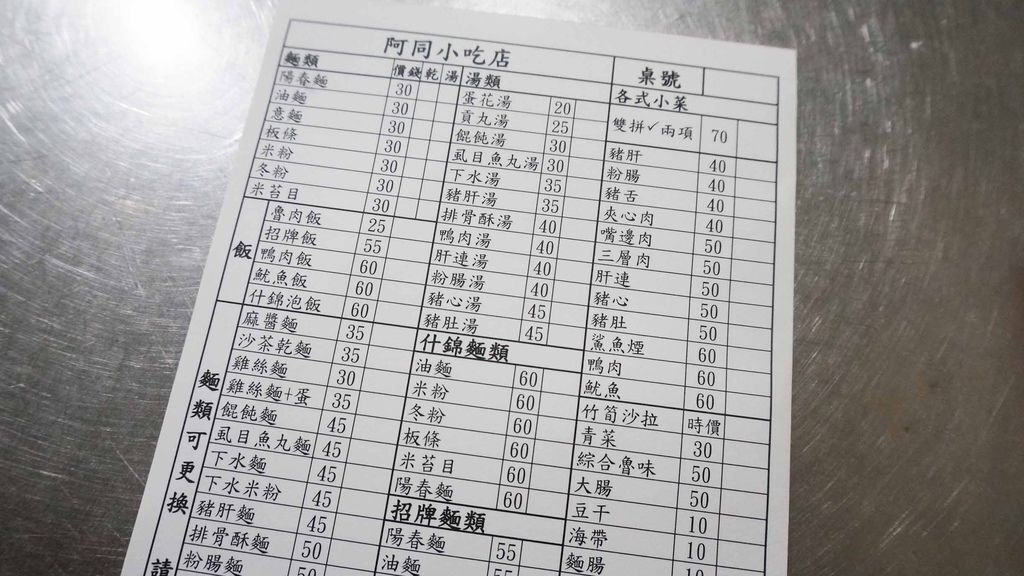 阿同小吃店
桌號
麵類 價錢 乾 湯
陽春麵 30
油麵 30
意麵 30
板條 30
米粉 30
冬粉 30
米苔目 30
飯
魯肉飯 25
招牌飯 55
鴨肉飯 60
魷魚飯 60
什錦泡飯 60
麵類可更換
請
麻醬麵 35
沙茶乾麵 35
雞絲麵 30
雞絲麵+蛋 35
餛飩麵 45
虱目魚丸麵 45
下水麵 45
下水米粉 45
豬肝麵 45
排骨酥麵 50
粉腸麵 50
湯類
蛋花湯 20
貢丸湯 25
餛飩湯 30
虱目魚丸湯 30
下水湯 35
豬肝湯 35
排骨酥湯 40
鴨肉湯 40
肝連湯 40
粉腸湯 40
豬心湯 45
豬肚湯 45
什錦麵類
油麵 60
米粉 60
冬粉 60
板條 60
米苔目 60
陽春麵 60
招牌麵類
陽春麵 55
油麵 55
各式小菜
雙拼✓兩項 70
豬肝 40
粉腸 40
豬舌 40
夾心肉 40
嘴邊肉 50
三層肉 50
肝連 50
豬心 50
豬肚 50
鯊魚煙 60
鴨肉 60
魷魚 60
竹筍沙拉 時價
青菜 30
綜合魯味 50
大腸 50
豆干 10
海帶 10
麵腸 10